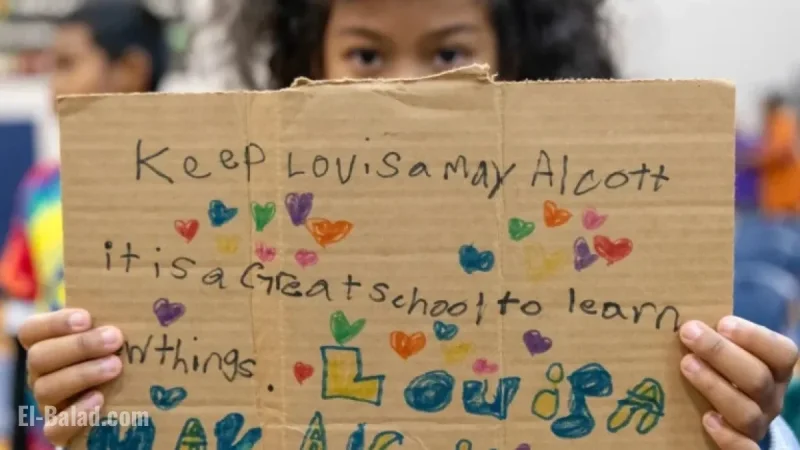 Keep Louisa May Alcott
it is a Great school to learn
w things.
Louisa
May Alc
El-Balad.com